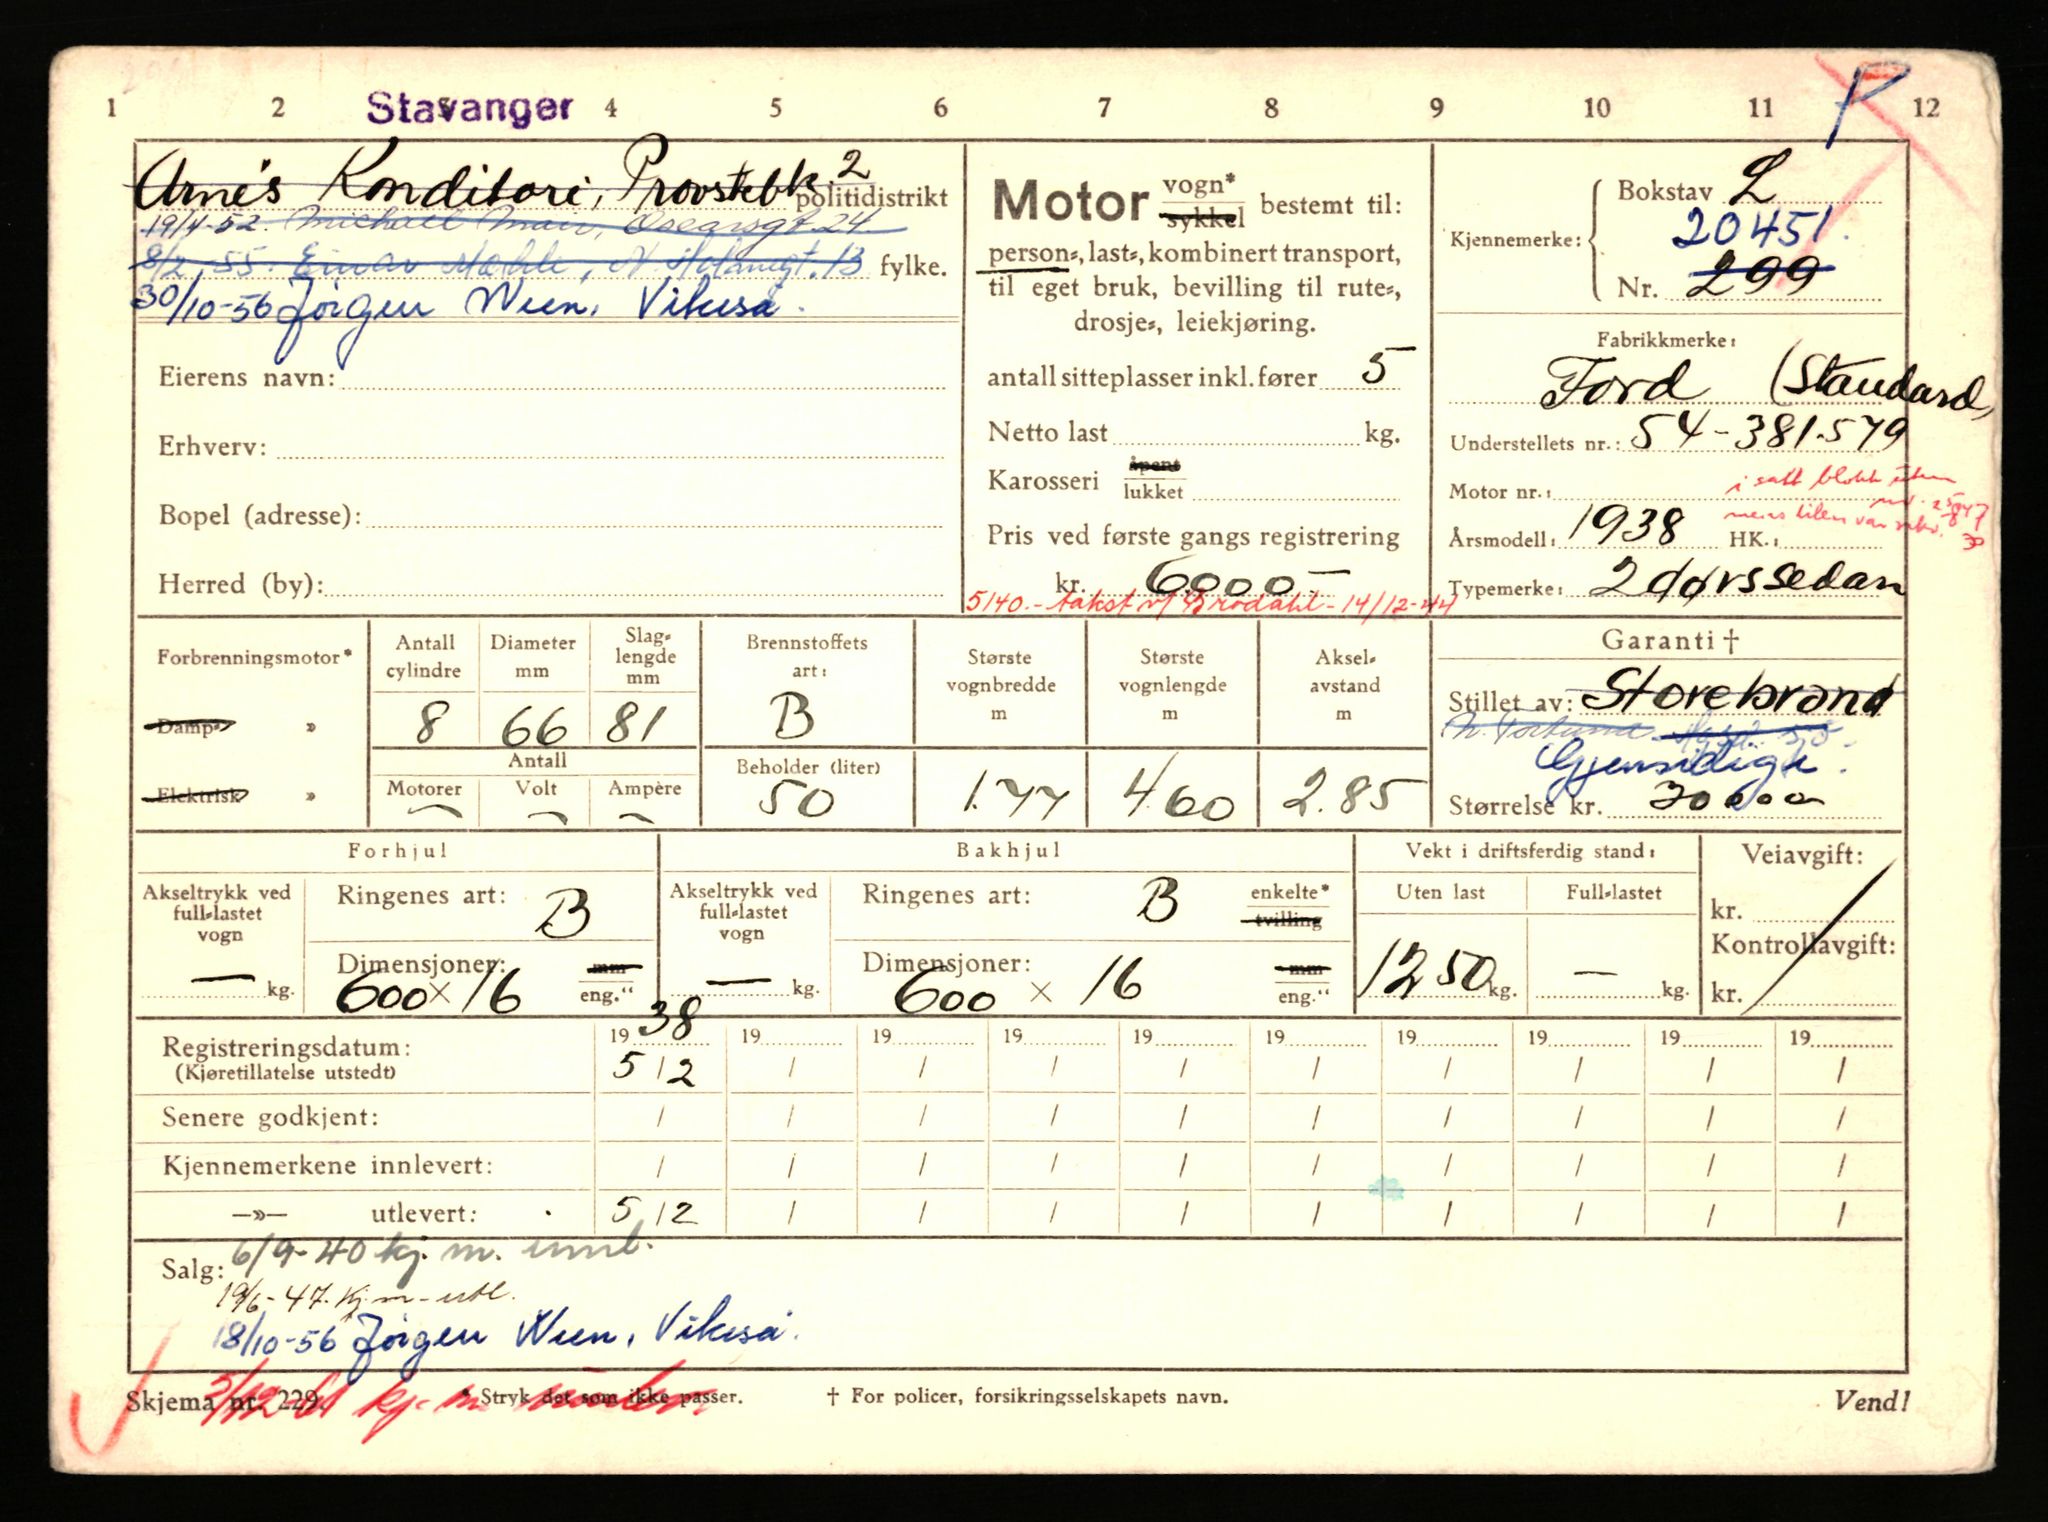 1 2 Stavanger 4 5 6 7 8 9 10 11 P 12
Arne's Konditori, Provstebk. 2 politidistrikt
19/4-52. Michael Oscarsgt. 24
8/2-55. Einar fylke.
30/10-56 Jørgen Wien, Vikeså.
Eierens navn:
Erhverv:
Bopel (adresse):
Herred (by):
Motor vogn* sykkel bestemt til:
person-, last-, kombinert transport,
til eget bruk, bevilling til rute-,
drosje-, leiekjøring.
antall sitteplasser inkl. fører 5
Netto last kg.
Karosseri åpent lukket
Pris ved første gangs registrering
kr. 6000.-
5140.- takst v/ Brødahl - 14/12-44
Bokstav L
Kjennemerke:
20451.
Nr. 299
Fabrikkmerke:
Ford (Standard)
Understellets nr.: 54-381.579
Motor nr.: i satt blokk uten
Årsmodell: 1938 HK.:
Typemerke: 2 dørs sedan
Forbrenningsmotor* Antall cylindre Diameter mm Slaglengde mm Brennstoffets art: Største vognbredde m Største vognlengde m Akselavstand m
Damp- » 8 66 81 B
Antall
Elektrisk » Motorer Volt Ampère Beholder (liter)
50 1.77 4.60 2.85
Garanti †
Stillet av: Storebrand
Gjensidige.
Størrelse kr. 30000
Forhjul Bakhjul Vekt i driftsferdig stand: Veiavgift:
Akseltrykk ved full-lastet vogn — kg.
Ringenes art: B
Dimensjoner: mm eng."
600 × 16
Akseltrykk ved full-lastet vogn — kg.
Ringenes art: B enkelte* tvilling
Dimensjoner: mm eng."
600 × 16
Uten last Full-lastet
1250 kg. — kg.
kr.
Kontrollavgift:
kr.
19 38 19 19 19 19 19 19 19 19 19
Registreringsdatum: 5/12 / / / / / / / / /
(Kjøretillatelse utstedt)
Senere godkjent: / / / / / / / / / /
Kjennemerkene innlevert: / / / / / / / / / /
—»— utlevert: 5/12 / / / / / / / / /
Salg: 6/9-40 kj. m. innl.
19/6-47. Kj.m. utl.
18/10-56 Jørgen Wien, Vikeså.
Skjema nr. 229. * Stryk det som ikke passer. † For policer, forsikringsselskapets navn. Vend!